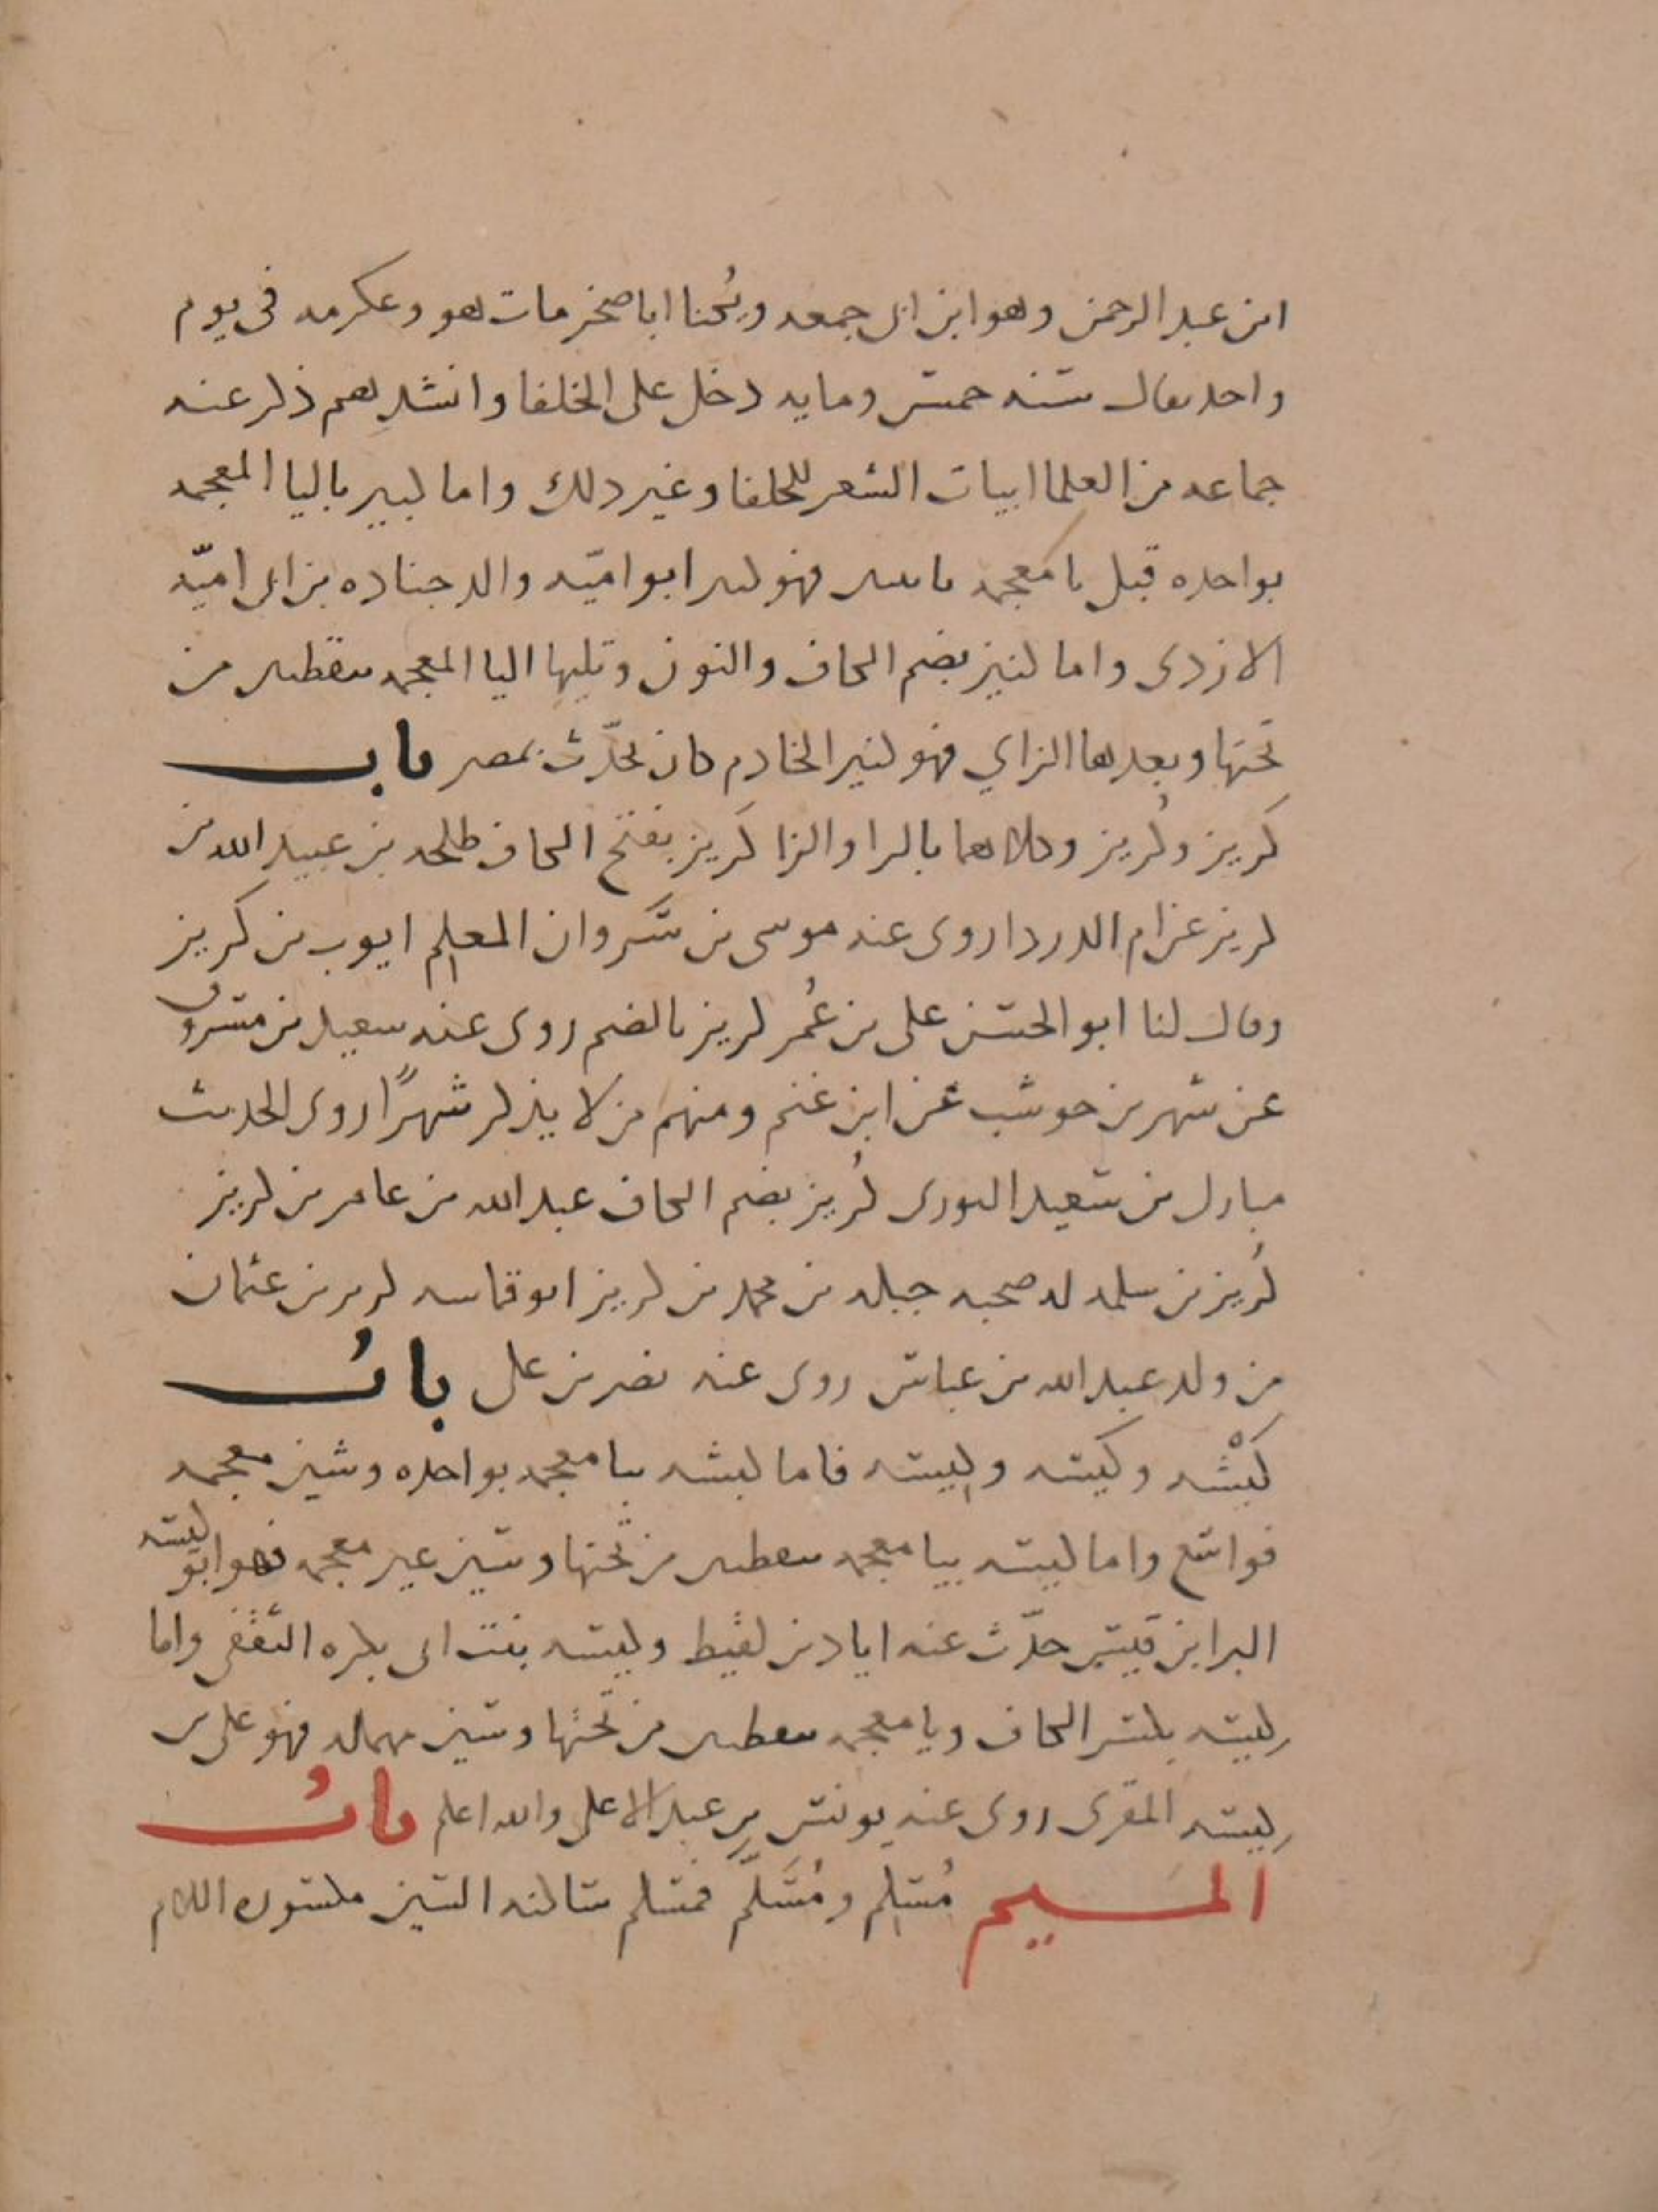 ابن عبد الرحمن وهو ابن ابى جمعه ويُكنا ابا صخر مات هو وعكرمه فى يوم
واحد يقال سنه خمس ومايه دخل على الخلفا وانشدهم ذكر عنه
جماعه من العلما ابيات الشعر للخلفا وغير ذلك واما كبير باليا المعجمه
بواحده قبل يا معجمه باثنين فهو كبير ابو اميّه والد جناده بن ابى اميّه
الازدى واما كنيز بضم الكاف والنون وتليها اليا المعجمه بنقطتين من
تحتها وبعدها الزاي فهو كنيز الخادم كان يحدّث بمصر باب
كَريز وكُريز وكلاهما بالرا والزا كَريز بفتح الكاف طلحه بن عبيد الله بن
كريز عن ام الدردا روى عنه موسى بن سَروان المعلم ايوب بن كريز
وقال لنا ابو الحسن على بن عُمر كريز بالضم روى عنه سعيد بن مسروق
عن شهر بن حوشب عن ابن غنم ومنهم من لا يذكر شهرًا روى الحديث
مبارك بن سعيد الثورى كُريز بضم الكاف عبد الله بن عامر بن كريز
كُريز بن سلمه له صحبه جبله بن محمد بن كريز ابو قماسه كريز بن عثمان
من ولد عبد الله بن عباس روى عنه نصر بن على بابُ
كَبْشه وكيسه وكِيسه فاما كبشه ببا معجمه بواحده وشين معجمه
فواسع واما كيسه بيا معجمه بنقطتين من تحتها وسين غير معجمه فهو ابو كيسه
البرا بن قيس حدّث عنه اياد بن لقيط وكيسه بنت ابى بكره الثَّقفى واما
كِيسه بكسر الكاف ويا معجمه بنقطتين من تحتها وسين مهمله فهو على بن
كِيسه المقرى روى عنه يونس بن عبد الاعلى والله اعلم بابُ
الميم مُسْلِم ومُسَلَّم فمسلم ساكنه السين مكسوره اللام